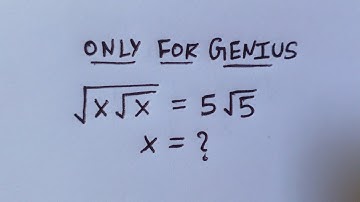 ONLY FOR GENIUS
√(x√x) = 5√5
x = ?